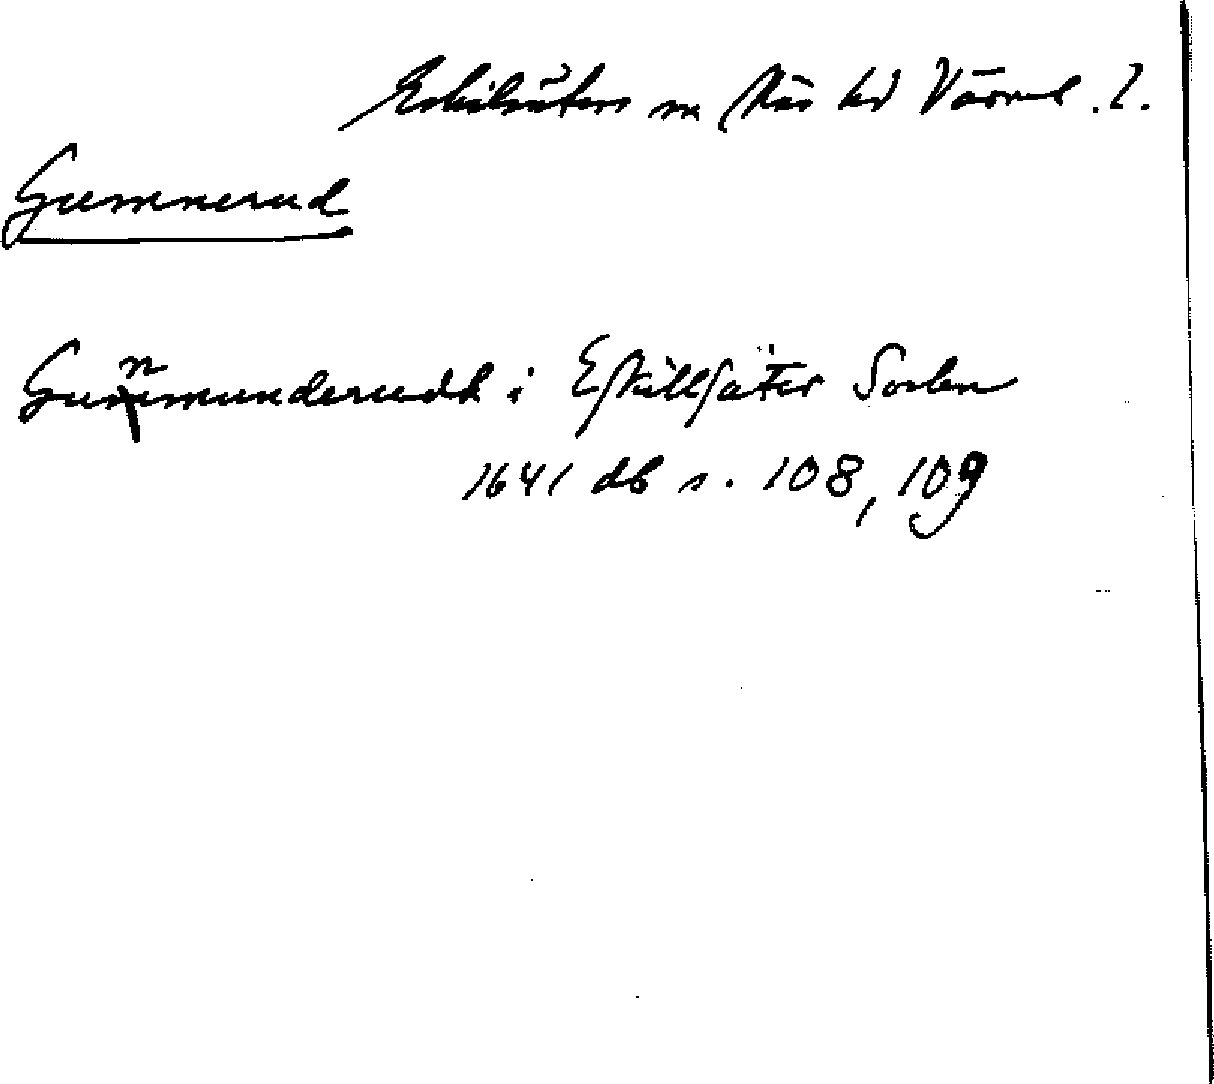 Eskilsäters sn Näs hd Värml. l.
Gummerud
Gunmunderudh i Eskillsäter Sochn
1641 db s. 108, 109